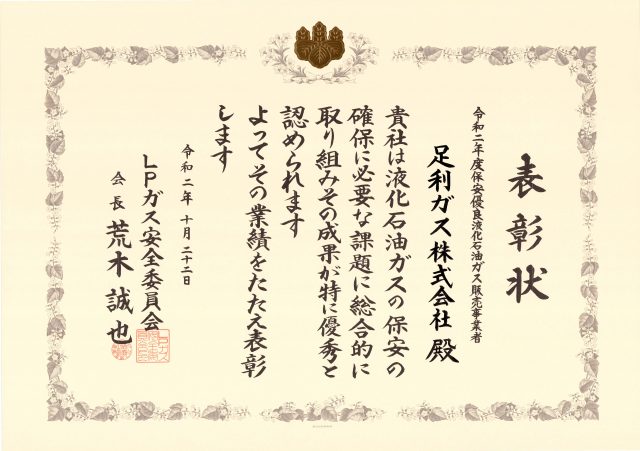 表彰状
令和二年度保安優良液化石油ガス販売事業者
足利ガス株式会社 殿
貴社は液化石油ガスの保安の
確保に必要な課題に総合的に
取り組みその成果が特に優秀と
認められます
よってその業績をたたえ表彰
します
令和二年 十月 二十二日
LPガス安全委員会
会長 荒木誠也